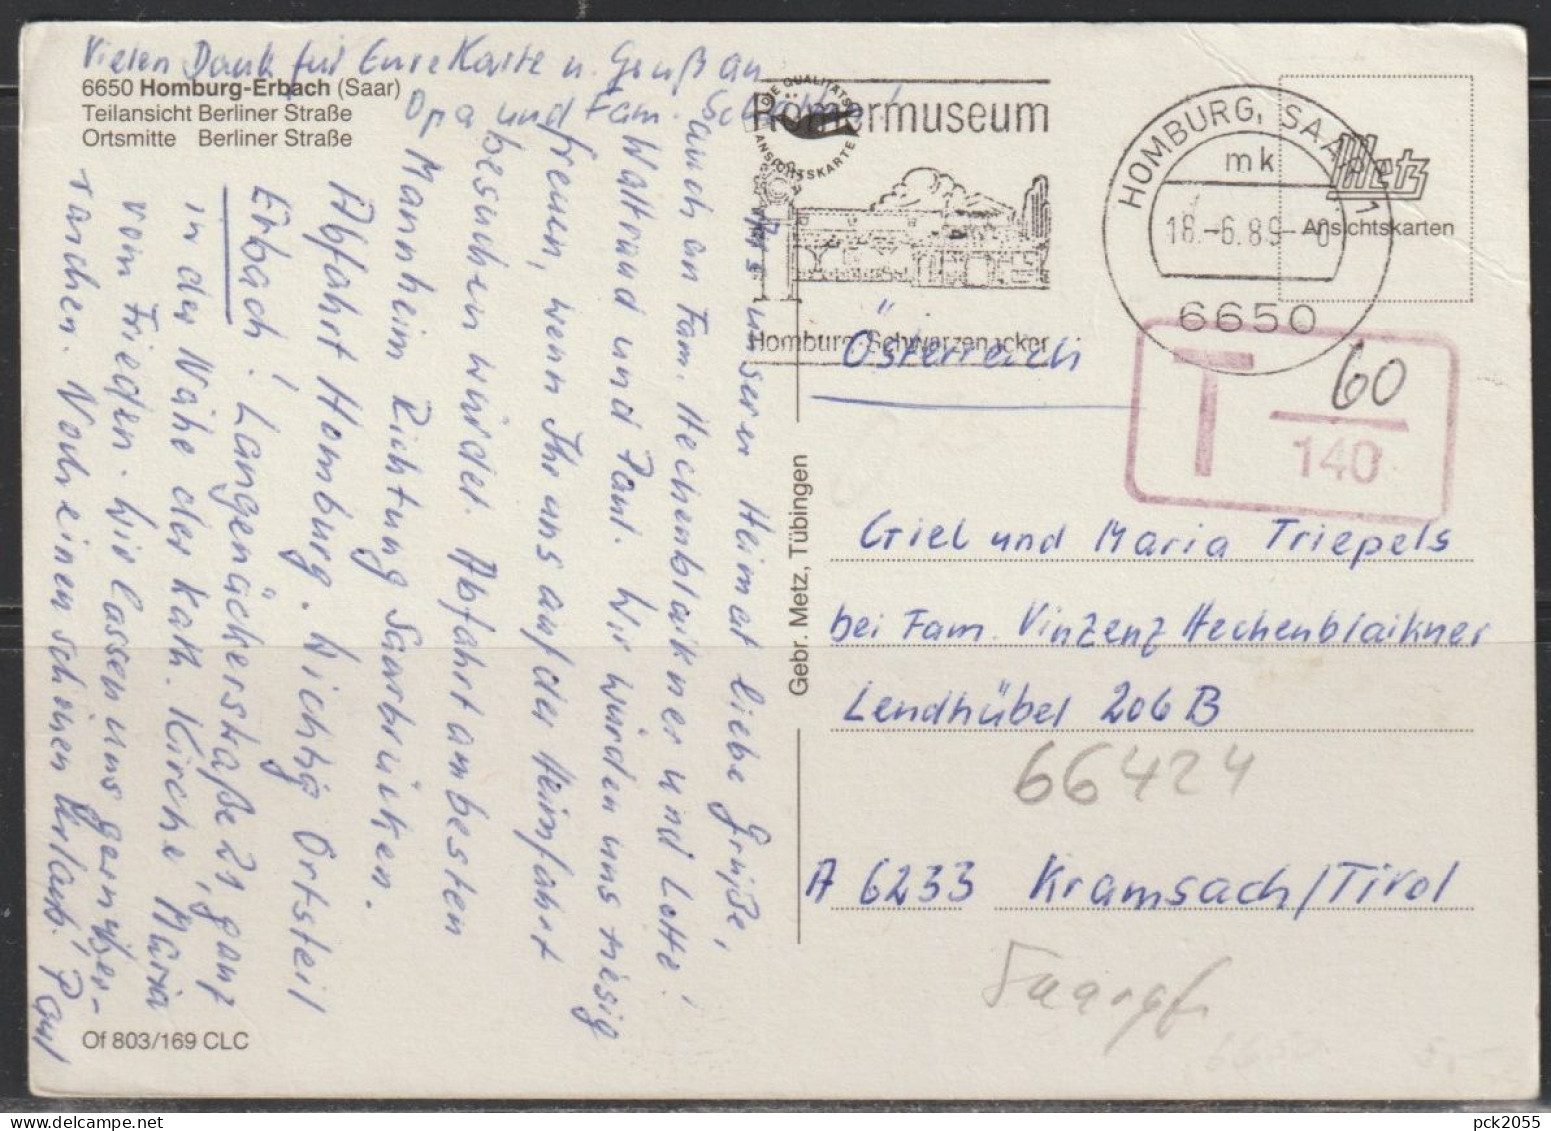 Vielen Dank für Eure Karte u. Gruß an
Opa und Fam.
6650 Homburg-Erbach (Saar)
Teilansicht Berliner Straße
Ortsmitte Berliner Straße
Aus unserer Heimat liebe Grüße,
auch an Fam. Hechenblaikner und Lotte!
Waltraud und Paul. Wir würden uns riesig
freuen, wenn Ihr uns auf der Heimfahrt
besuchen würdet. Abfahrt am besten
Mannheim Richtung Saarbrücken.
Abfahrt Homburg. Wichtig Ortsteil
Erbach! Langenäckerstraße 21, ganz
in der Nähe der kath. Kirche Maria
vom Frieden. Wir lassen uns gern über-
raschen. Noch einen schönen Urlaub! Paul
Of 803/169 CLC
Gebr. Metz, Tübingen
DIE QUALITÄTS
ANSICHTSKARTE
Römermuseum
Homburg-Schwarzenacker
HOMBURG, SAAR 1
mk
18.-6.89-
6650
Metz
Ansichtskarten
Österreich
T 60
140
Giel und Maria Triepels
bei Fam. Vinzenz Hechenblaikner
Lendhübel 206 B
66424
A 6233 Kramsach/Tirol
Saarpf.
6650
5,-
pck2055